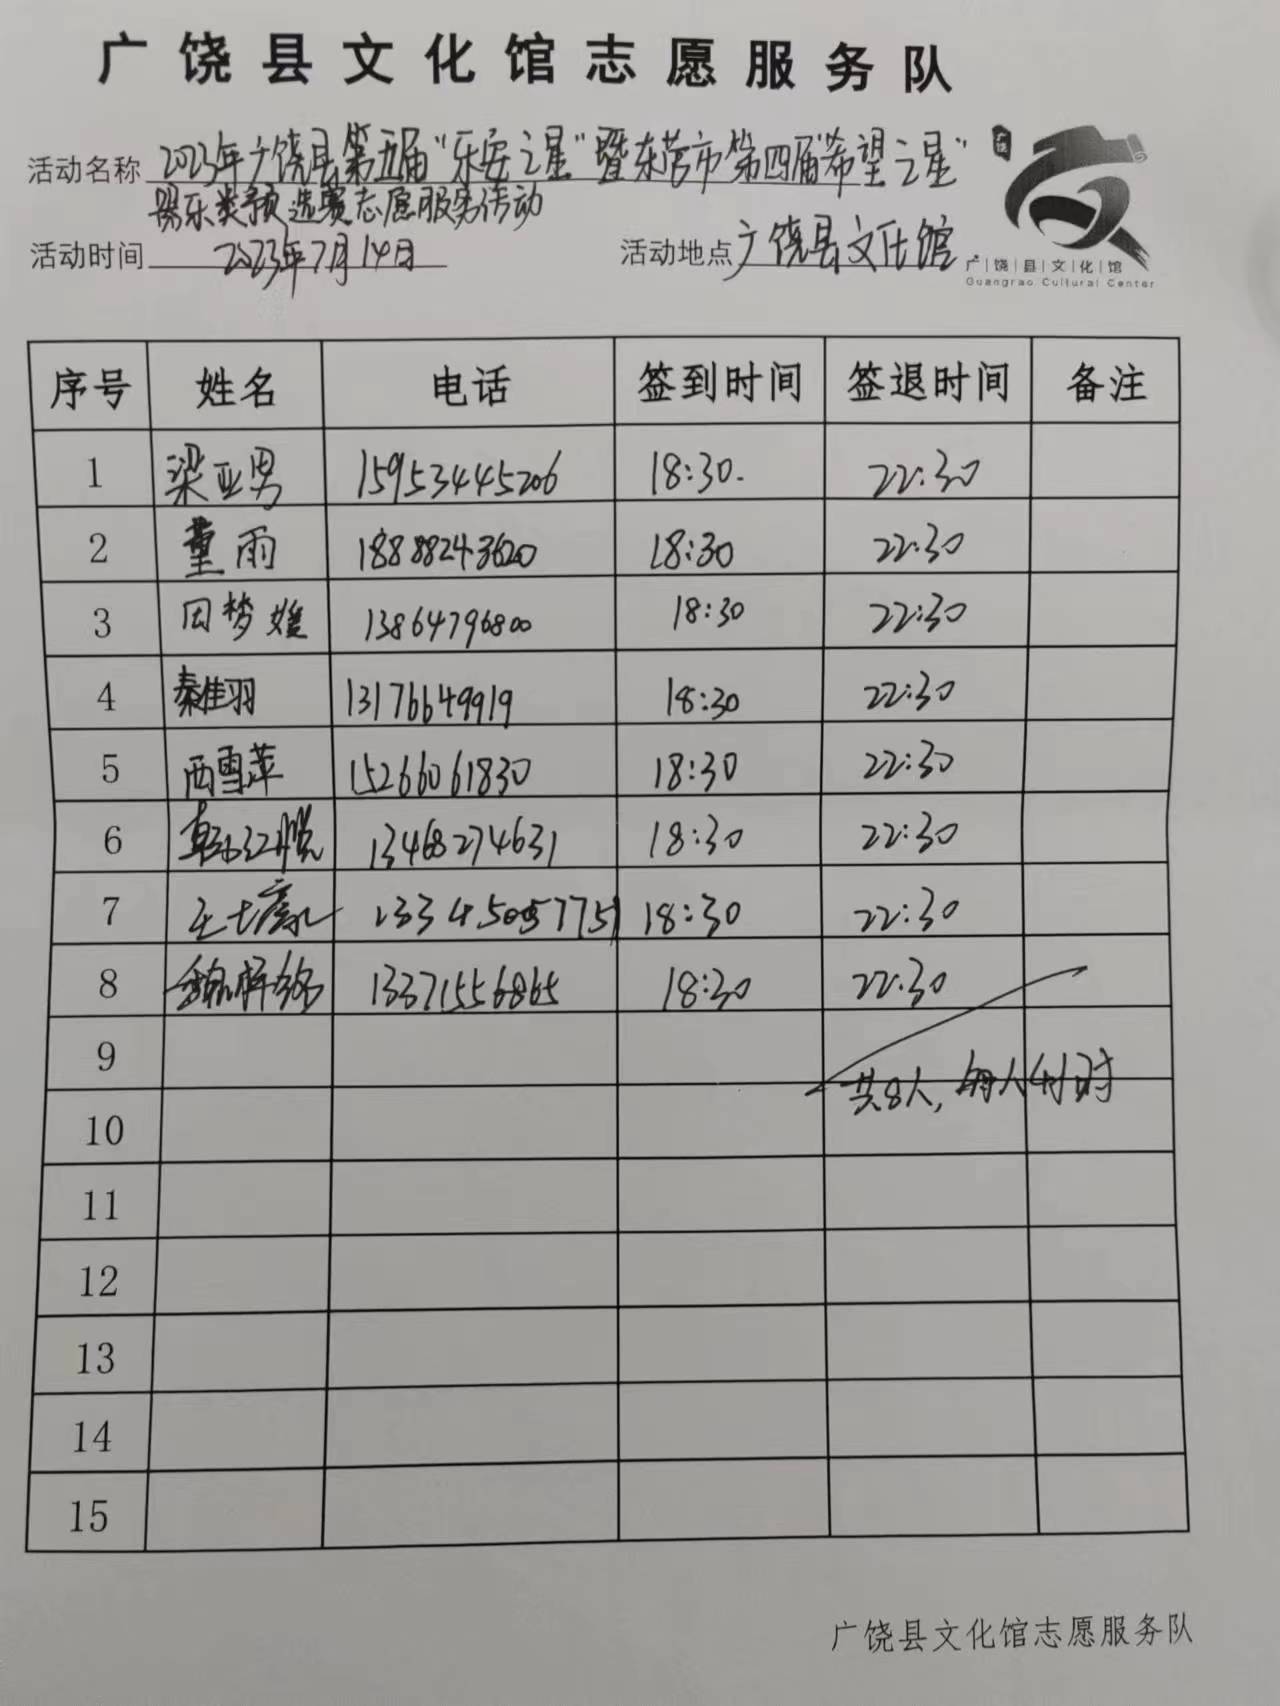 广饶县文化馆志愿服务队
活动名称 2023年广饶县第五届"乐安之星"暨东营市第四届"希望之星"
器乐类预选赛志愿服务活动
活动时间 2023年7月14日 活动地点 广饶县文化馆
广饶县文化馆
Guangrao Cultural Center
序号 姓名 电话 签到时间 签退时间 备注
1 梁亚男 15953445206 18:30 22:30
2 董雨 18888243620 18:30 22:30
3 田梦媛 13864796800 18:30 22:30
4 秦佳羽 13176649919 18:30 22:30
5 西雪萍 15266061830 18:30 22:30
6 13468274631 18:30 22:30
7 13345057751 18:30 22:30
8 13371556865 18:30 22:30
9
共8人,每人4小时
10
11
12
13
14
15
广饶县文化馆志愿服务队